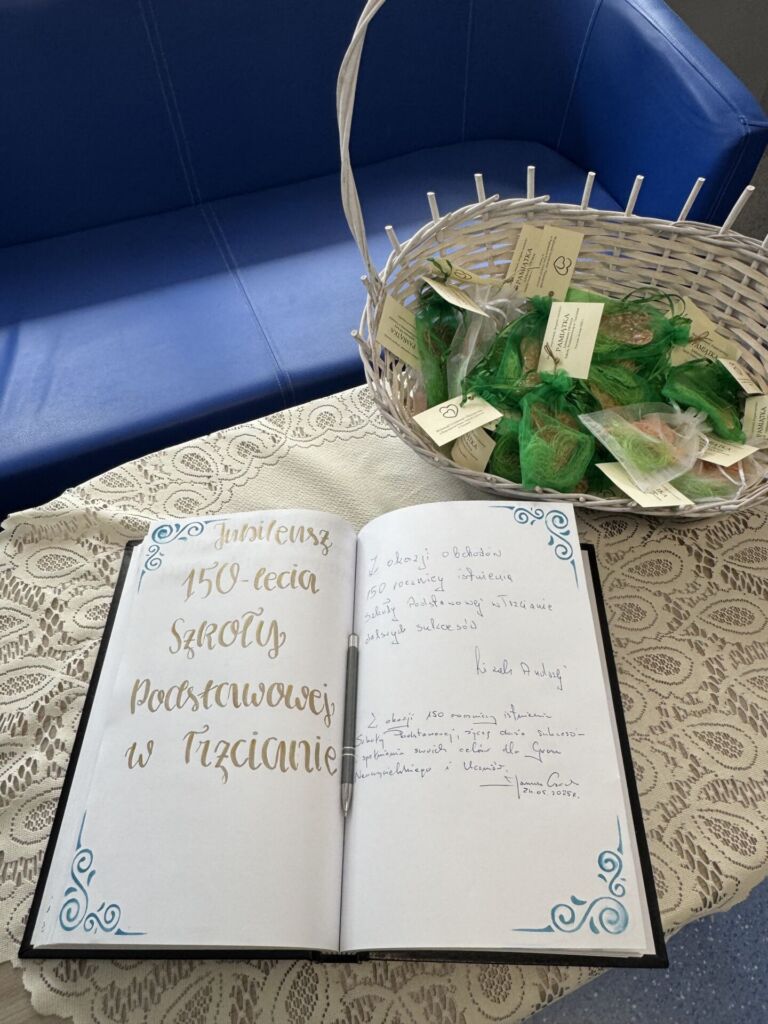 PAMIĄTKA
PAMIĄTKA
Jubileusz
150-lecia
Szkoły
Podstawowej
w Trzcianie
Z okazji obchodów
150 rocznicy istnienia
szkoły Podstawowej w Trzcianie
dalszych sukcesów
Andrzej
Z okazji 150 rocznicy istnienia
Szkoły Podstawowej, życzę dużo sukcesów
spełnienia swoich celów dla Grona
Nauczycielskiego i Uczniów.
Janusz
24.05.2025r.